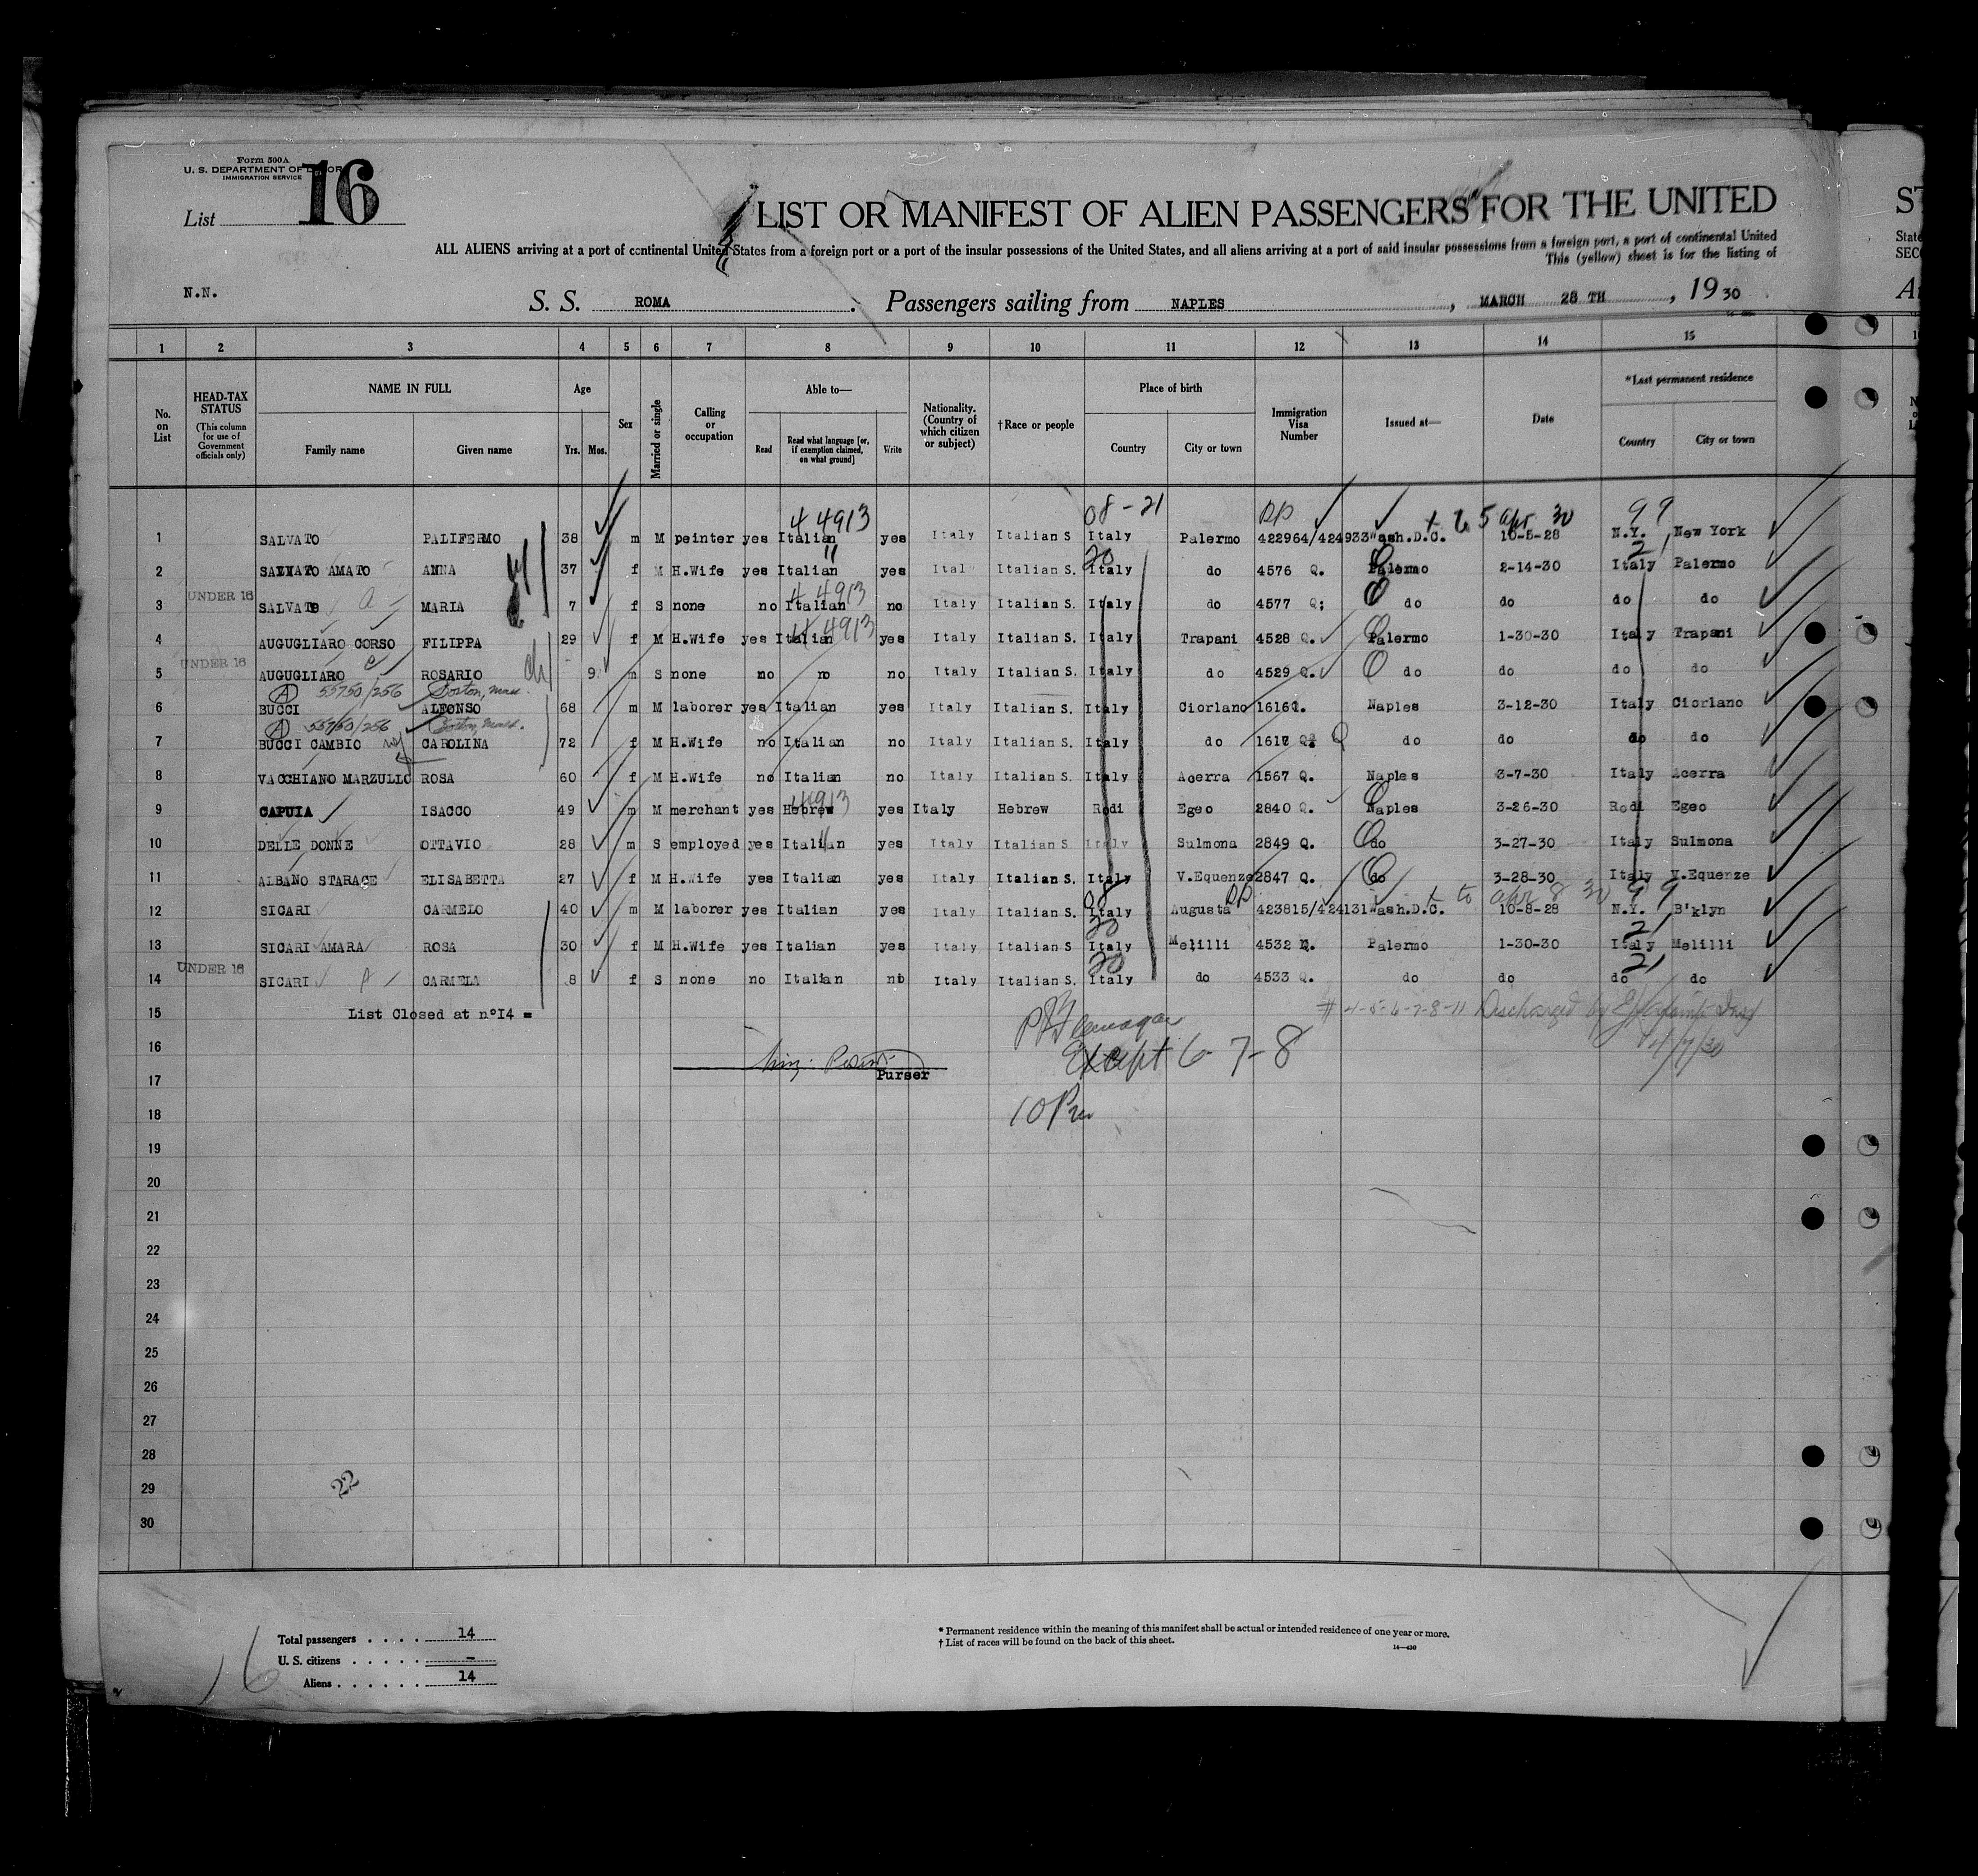 Form 500A
U. S. DEPARTMENT OF LABOR
IMMIGRATION SERVICE
List 16
LIST OR MANIFEST OF ALIEN PASSENGERS FOR THE UNITED
ST
ALL ALIENS arriving at a port of continental United States from a foreign port or a port of the insular possessions of the United States, and all aliens arriving at a port of said insular possessions from a foreign port, a port of continental United
State
This (yellow) sheet is for the listing of
SEC
N.N.
S. S. ROMA . Passengers sailing from NAPLES , MARCH 28 TH , 19 30
1 2 3 4 5 6 7 8 9 10 11 12 13 14 15
No. on List
HEAD-TAX STATUS (This column for use of Government officials only)
NAME IN FULL
Family name
Given name
Age
Yrs.
Mos.
Sex
Married or single
Calling or occupation
Able to—
Read
Read what language [or, if exemption claimed, on what ground]
Write
Nationality. (Country of which citizen or subject)
†Race or people
Place of birth
Country
City or town
Immigration Visa Number
Issued at—
Date
*Last permanent residence
Country
City or town
4 4913 08-21 + to 5 apr 30 99
1 SALVATO PALIFERMO 38 m M peinter yes Italian yes Italy Italian S Italy Palermo 422964/424933 Wash.D.C. 10-5-28 N.Y. New York
11 20 21
2 SALVATO AMATO ANNA 37 f M H.Wife yes Italian yes Italy Italian S. Italy do 4576 Q. Palermo 2-14-30 Italy Palermo
UNDER 16 4 4913
3 SALVATO a MARIA 7 f S none no Italian no Italy Italian S. Italy do 4577 Q; do do do do
4 4913
4 AUGUGLIARO CORSO FILIPPA 29 f M H.Wife yes Italian yes Italy Italian S. Italy Trapani 4528 Q. Palermo 1-30-30 Italy Trapani
UNDER 16
5 AUGUGLIARO ROSARIO 9 m S none no no no Italy Italian S. Italy do 4529 Q. do do do do
A 55750/256 Boston, Mass.
6 BUCCI ALFONSO 68 m M laborer yes Italian yes Italy Italian S. Italy Ciorlano 1616Q. Naples 3-12-30 Italy Ciorlano
A 55750/256 Boston, Mass.
7 BUCCI CAMBIO CAROLINA 72 f M H.Wife no Italian no Italy Italian S. Italy do 1617 Q. Q do do do do
8 VACCHIANO MARZULLO ROSA 60 f M H.Wife no Italian no Italy Italian S. Italy Acerra 1567 Q. Naples 3-7-30 Italy Acerra
4913
9 CAPUIA ISACCO 49 m M merchant yes Hebrew yes Italy Hebrew Rodi Egeo 2840 Q. Naples 3-26-30 Rodi Egeo
10 DELLE DONNE OTTAVIO 28 m S employed yes Italian yes Italy Italian S Italy Sulmona 2849 Q. do 3-27-30 Italy Sulmona
11 ALBANO STARACE ELISABETTA 27 f M H.Wife yes Italian yes Italy Italian S. Italy V.Equenze 2847 Q. do 3-28-30 Italy V.Equenze
08 + to apr 8 30 99
12 SICARI CARMELO 40 m M laborer yes Italian yes Italy Italian S. Italy Augusta 423815/424131 Wash.D.C. 10-8-28 N.Y. B'klyn
20 21
13 SICARI AMARA ROSA 30 f M H.Wife yes Italian yes Italy Italian S Italy Melilli 4532 Q. Palermo 1-30-30 Italy Melilli
UNDER 16 20 21
14 SICARI CARMELA 8 f S none no Italian no Italy Italian S. Italy do 4533 Q. do do do do
15 List Closed at n°I4 =
# 4-5-6-7-8-11 Discharged by
4/7/30
16
Except 6-7-8
17 Purser
18
19
20
21
22
23
24
25
26
27
28
29
30
22
Total passengers . . . . 14
U. S. citizens . . . . . -
Aliens . . . . . . 14
16
* Permanent residence within the meaning of this manifest shall be actual or intended residence of one year or more.
† List of races will be found on the back of this sheet.
14—430